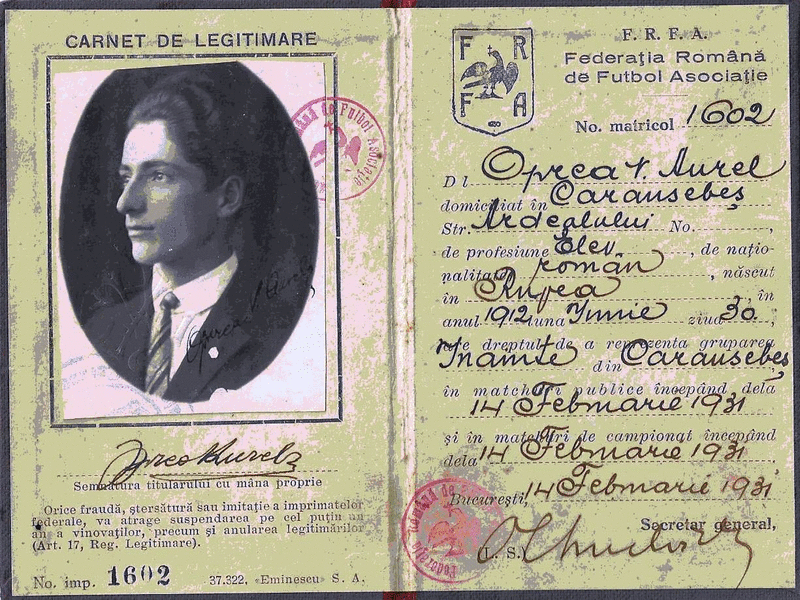 CARNET DE LEGITIMARE
Oprea V. Aurel
Semnătura titularului cu mâna proprie
Orice fraudă, ștersătură sau imitație a imprimatelor
federale, va atrage suspendarea pe cel puțin un
an a vinovaților, precum și anularea legitimării
(Art. 17, Reg. Legitimare).
No. imp. 1602 37.322, «Eminescu» S. A.
F R
F A
F. R. F. A.
Federația Română
de Futbol Asociație
No. matricol 1602
Dl. Oprea V. Aurel
domiciliat în Caransebeș
Str. Ardealului No. ,
de profesiune Elev , de națio-
nalitate român , născut
în Rupea , în
anul 1912 luna Iunie ziua 30 ,
are dreptul de a reprezenta gruparea
Înainte din Caransebeș
în matchuri publice începând dela
14 Februarie 1931
și în matchuri de campionat începând
dela 14 Februarie 1931
București, 14 Februarie 1931
Secretar general,
(L. S.)